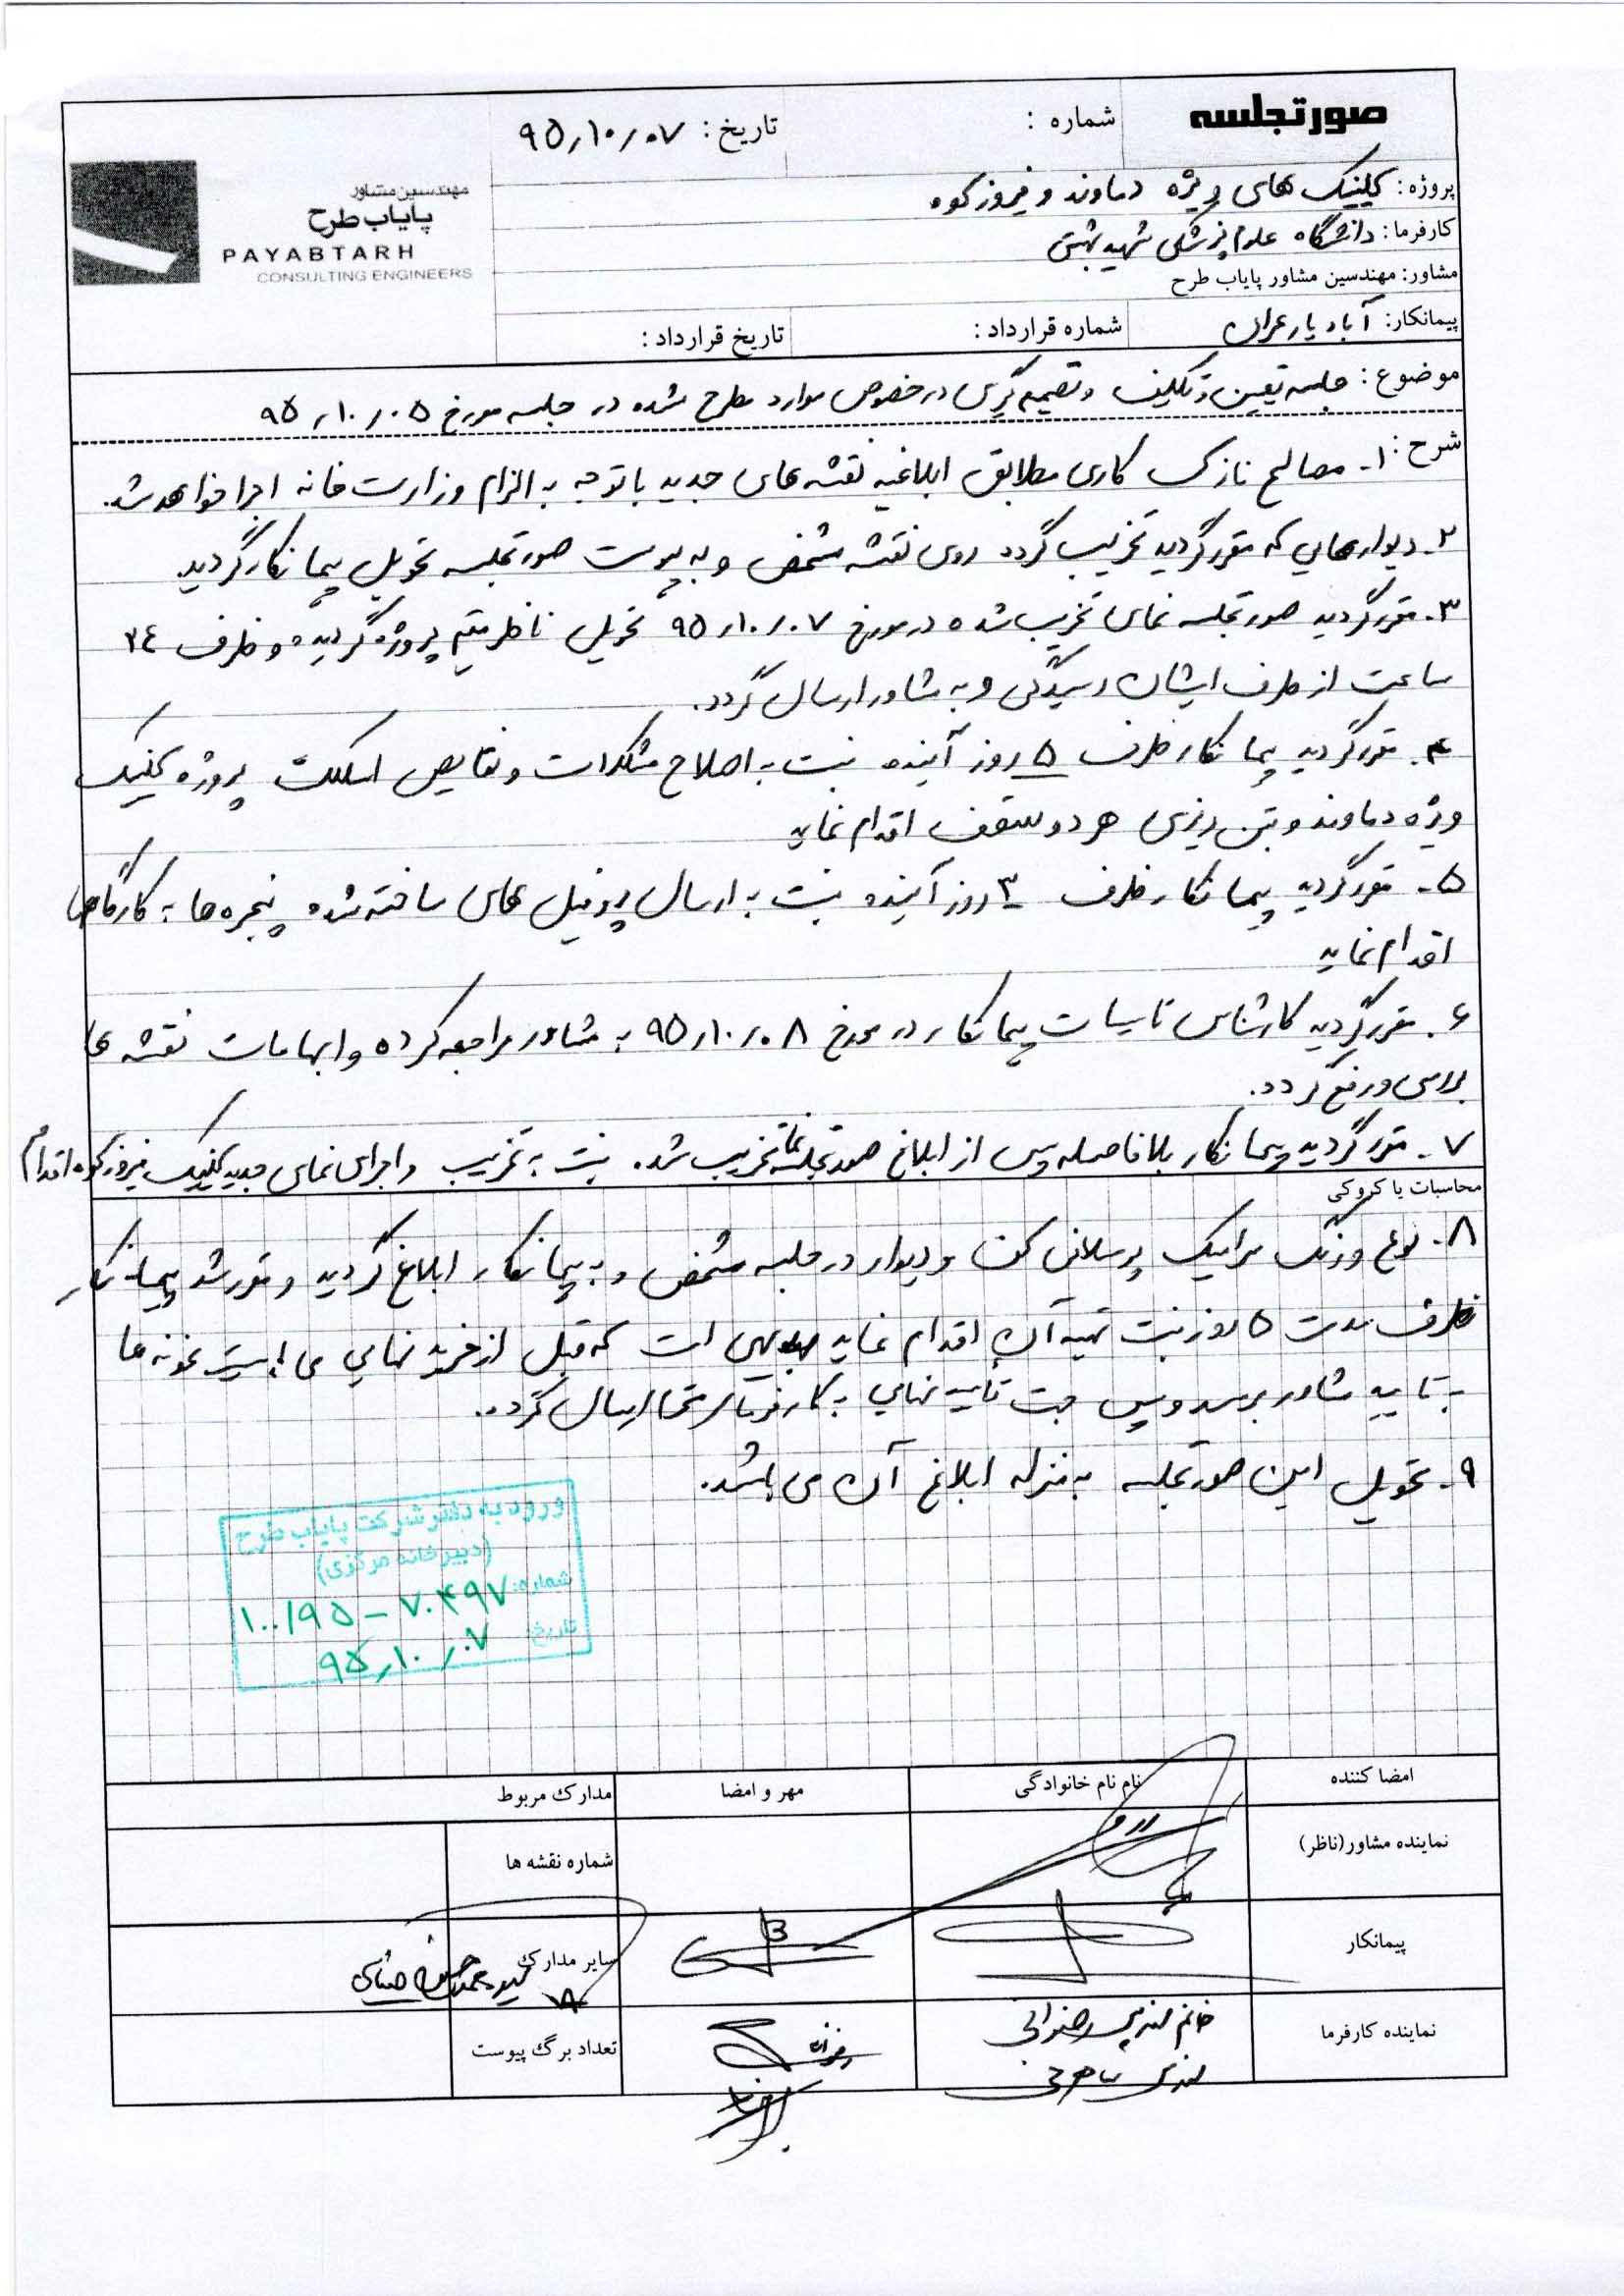 صورتجلسه
شماره :
تاریخ : ۹۵٫۱۰٫۰۷
مهندسین مشاور
پایاب طرح
PAYABTARH
CONSULTING ENGINEERS
پروژه : کلینیک های ویژه دماوند و فیروزکوه
کارفرما : دانشگاه علوم پزشکی شهید بهشتی
مشاور: مهندسین مشاور پایاب طرح
پیمانکار: آباد یار عمران
شماره قرارداد :
تاریخ قرارداد :
موضوع : جلسه تعیین تکلیف و تصمیم گیری در خصوص موارد مطرح شده در جلسه مورخ ۹۵٫۱۰٫۰۵
شرح : ۱- مصالح نازک کاری مطابق ابلاغیه نقشه های جدید با توجه به الزام وزارت خانه اجرا خواهد شد.
۲- دیوارهایی که مقرر گردید تخریب گردد روی نقشه مشخص و به پیوست صورتجلسه تحویل پیمانکار گردید.
۳- مقرر گردید صورتجلسه نمای تخریب شده در مورخ ۹۵٫۱۰٫۰۷ تحویل ناظر مقیم پروژه گردیده و ظرف ۲٤
ساعت از طرف ایشان رسیدگی و به مشاور ارسال گردد.
۴- مقرر گردید پیمانکار ظرف ۵ روز آینده نسبت به اصلاح مشکلات و نقایص اسکلت پروژه کلینیک
ویژه دماوند و بتن ریزی هر دو سقف اقدام نماید
۵- مقرر گردید پیمانکار ظرف ۳ روز آینده نسبت به ارسال پروفیل های ساخته شده پنجره ها به کارگاهها
اقدام نماید
۶- مقرر گردید کارشناس تاسیسات پیمانکار در مورخ ۹۵٫۱۰٫۰۸ به مشاور مراجعه کرده و ابهامات نقشه ها
بررسی و رفع گردد.
۷- مقرر گردید پیمانکار بلافاصله پس از ابلاغ صورتجلسه نمای تخریب شده نسبت به تخریب و اجرای نمای جدید کلینیک فیروزکوه اقدام
محاسبات یا کروکی
۸- نوع و رنگ سرامیک پرسلانی کف و دیوار در جلسه مشخص و به پیمانکار ابلاغ گردید و مقرر شد پیمانکار
ظرف مدت ۵ روز نسبت تهیه آن اقدام نماید بدیهی است که قبل از خرید نهایی می بایست نمونه ها
به تایید مشاور برسد و سپس جهت تایید نهایی به کارفرمای محترم ارسال گردد.
۹- تحویل این صورتجلسه به منزله ابلاغ آن می باشد.
ورود به دفتر شرکت پایاب طرح
(دبیرخانه مرکزی)
شماره: ۱۰۰/۹۵ – ۷۰۴۹۷
تاریخ: ۹۵٫۱۰٫۰۷
امضا کننده
نام نام خانوادگی
مهر و امضا
مدارک مربوط
نماینده مشاور(ناظر)
شماره نقشه ها
پیمانکار
سایر مدارک
نماینده کارفرما
خانم مهندس رضوانی
مهندس
تعداد برگ پیوست